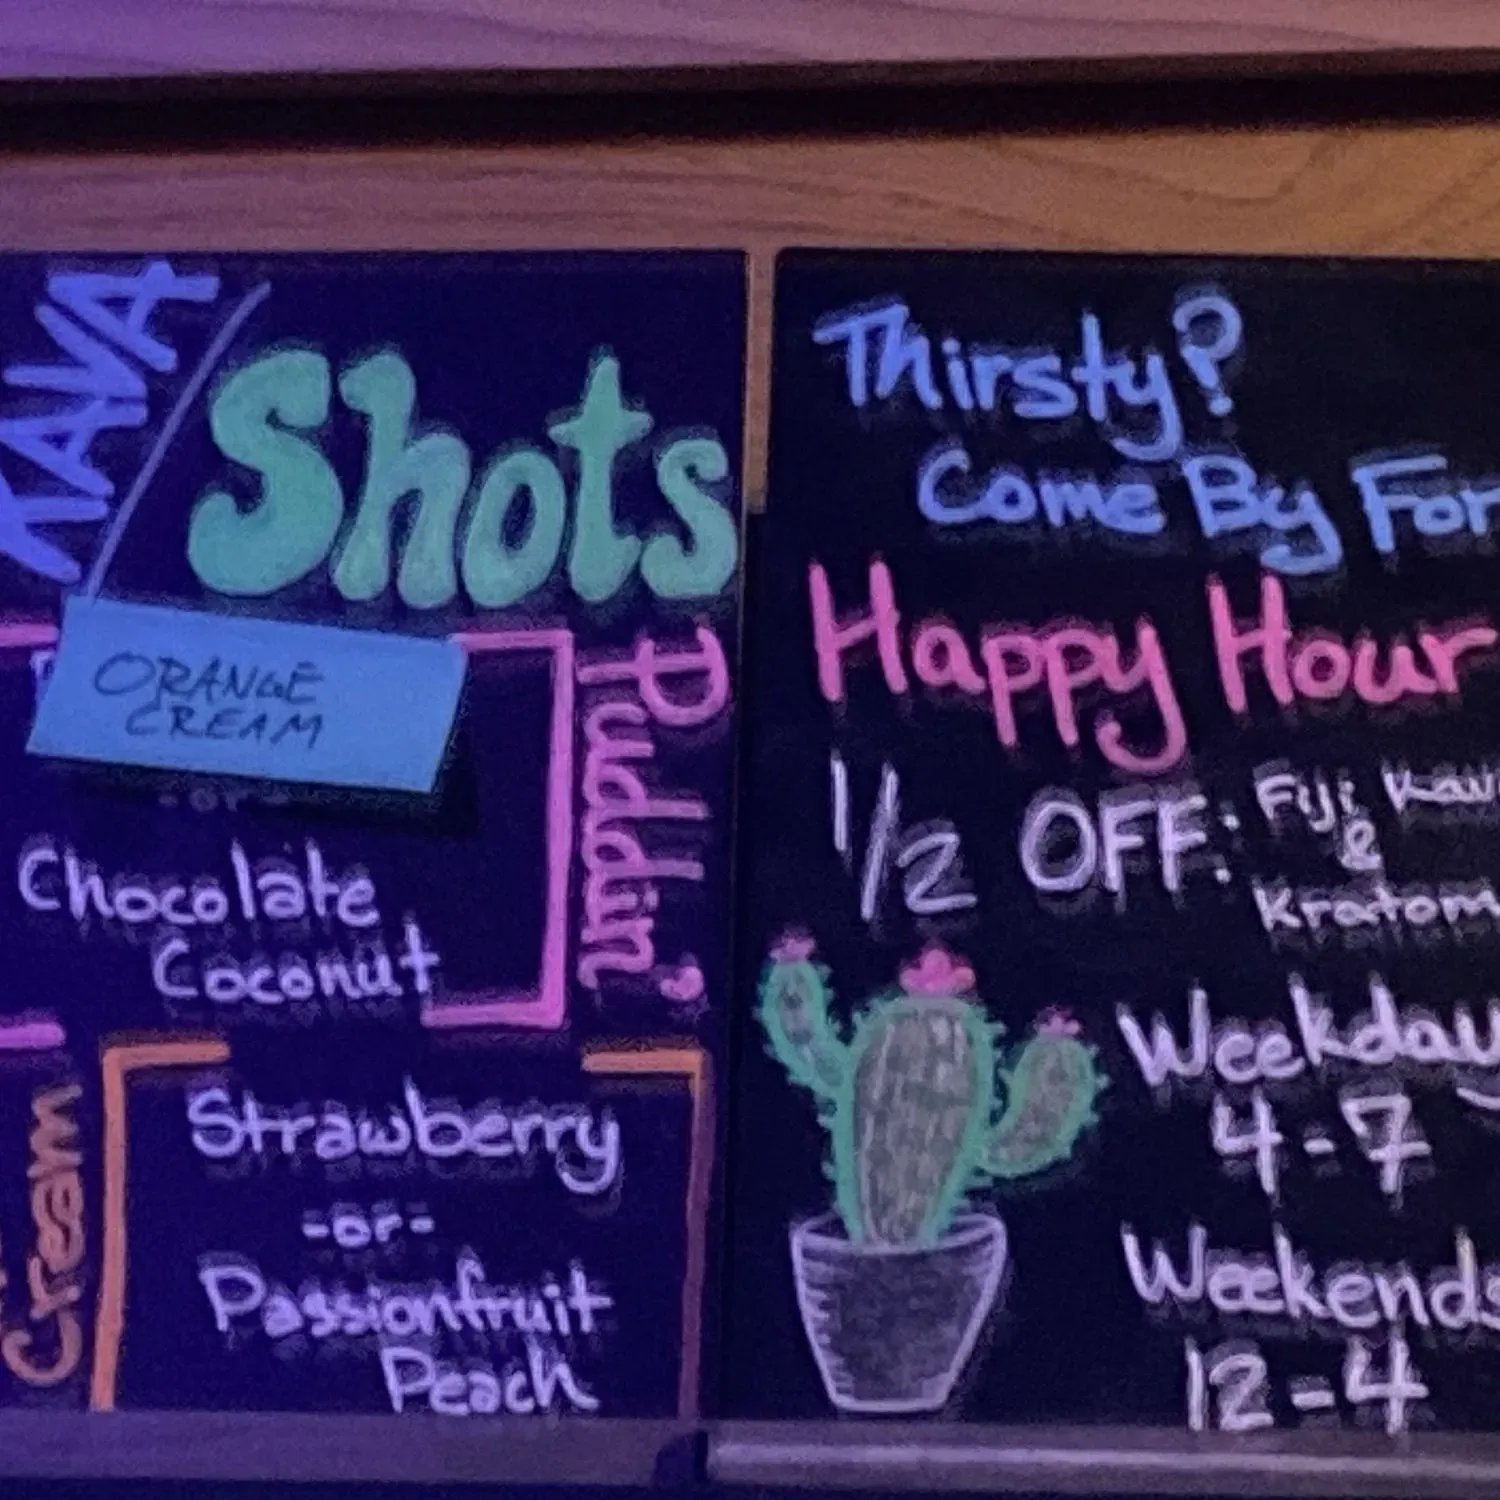 KAVA
Shots
ORANGE
CREAM
-or-
Chocolate
Coconut
Puddin'
Cream
Strawberry
-or-
Passionfruit
Peach
Thirsty?
Come By For
Happy Hour
1/2 OFF: Fiji Kav
&
Kratom
Weekday
4-7
Weekends
12-4